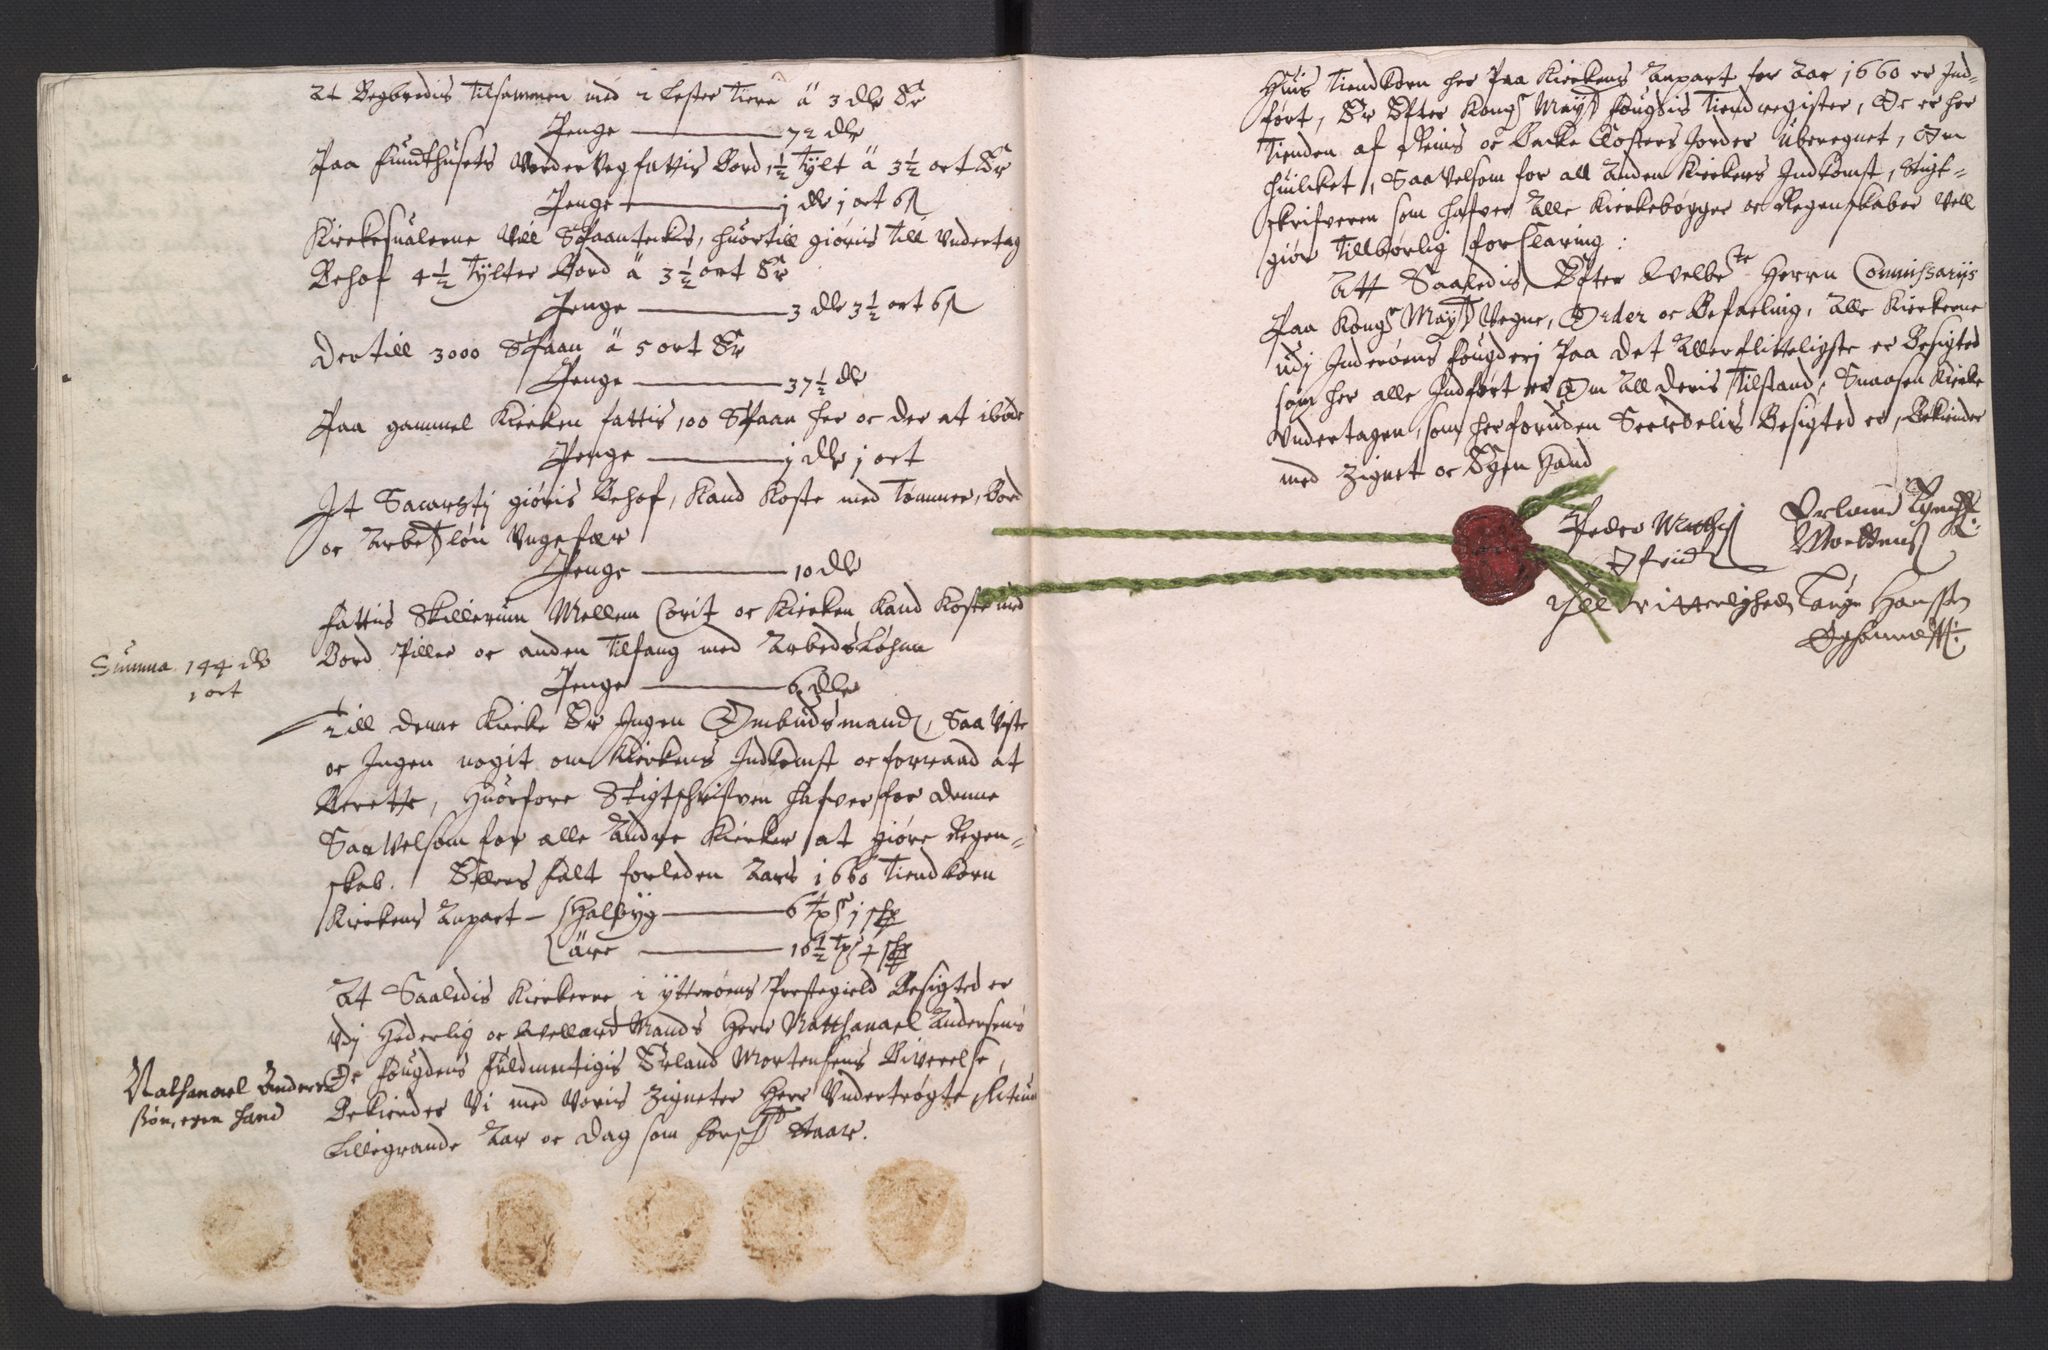 At Begbredis tilsammen med 2 Lester Tiere â 3 dlr Er
Penge — 72 dlr
Paa Sundthusets Norder Veg fattis Bord, 1½ Tylt â 3½ ort Er
Penge — j dlr j ort 6 s
Kirckesualerne Vill Spaanteckis, huortill giøris till Vndertag
Behof 4½ Tylter Bord â 3½ ort Er
Penge — 3 dlr 3½ ort 6 s
Dertill 3000 Spaan â 5 ort Er
Penge — 37½ dlr
Paa gammel Kircken fattis 100 Spaan her oc der at ibøde
Penge — j dlr j ort
It Sacarsti giøris Behof, Kand Koste med Tømmer, Bord
oc Arbeidsløn Vngefær
Penge — 10 dlr
Fattis Skillerum Mellem Corit oc Kircken Kand Koste med
Bord Piller oc anden Tilfang med Arbeds Løhnn
Penge — 6 dlr
Summa 144 dlr
1 ort
Till denne Kircke Er Ingen Ombudsmand, Saa Viste
oc Ingen nogit om Kirckens Indkomst oc forraad at
Berette, Huorfore Stigtschrifven hafver for denne
Saa Velsom for alle Andre Kircker at giøre Regen-
skab. Ellers falt forleden Aars 1660 Tiendkorn
Kirckens Anpart — Halbyg — 6 tpr j shp
aure — 16½ tpr 4 shp
At Saaledis Kirckerne i Ytterøens Prestegield Besigted er
Vdj Hederlig oc Vellærd Mands Herr Natthanael Andersens
Oc Fougdens Fuldmectigis Erland Mortensens Biverelse,
Bekiender Vi med Voris Zigneter Herr Vndertrøgte, Actum
Lillegrande Aar oc Dag som forscht Staar.
Nathanael Anders
søn, egen haand
Huis Tiendkorn her Paa Kirckens Anpart for Aar 1660 er Ind-
ført, Er Efter Kongr Mayts Fougdis Tiendregister, Oc er her
Tienden af Reins oc Backe Closters Jorder Uberegnet, Om
huilcket, Saavelsom for all Anden Kirckers Indkomst, Stigt-
skrifveren som hafver Alle Kirckebøgger oc Regenskaber Vell
giør Tillbørlig forklaring:
Att Saaledis, Efter Velbe te Herrn Commissarijs
Paa Kongr Mayts Vegne, Order oc Befaeling, Alle Kirckerne
udj Inderøens Fougderj Paa det Allerflitteligste er Besigted
som her alle Indført er Om All deris Tilstand, Snaasen Kircke
Vndertagen, som herforuden Serdelis Besigted er, Bekiender
med Zignet oc Egen Haand
Peder Matthis
Erland
Mortens
Till Vitterlighed Lauge Hanssen